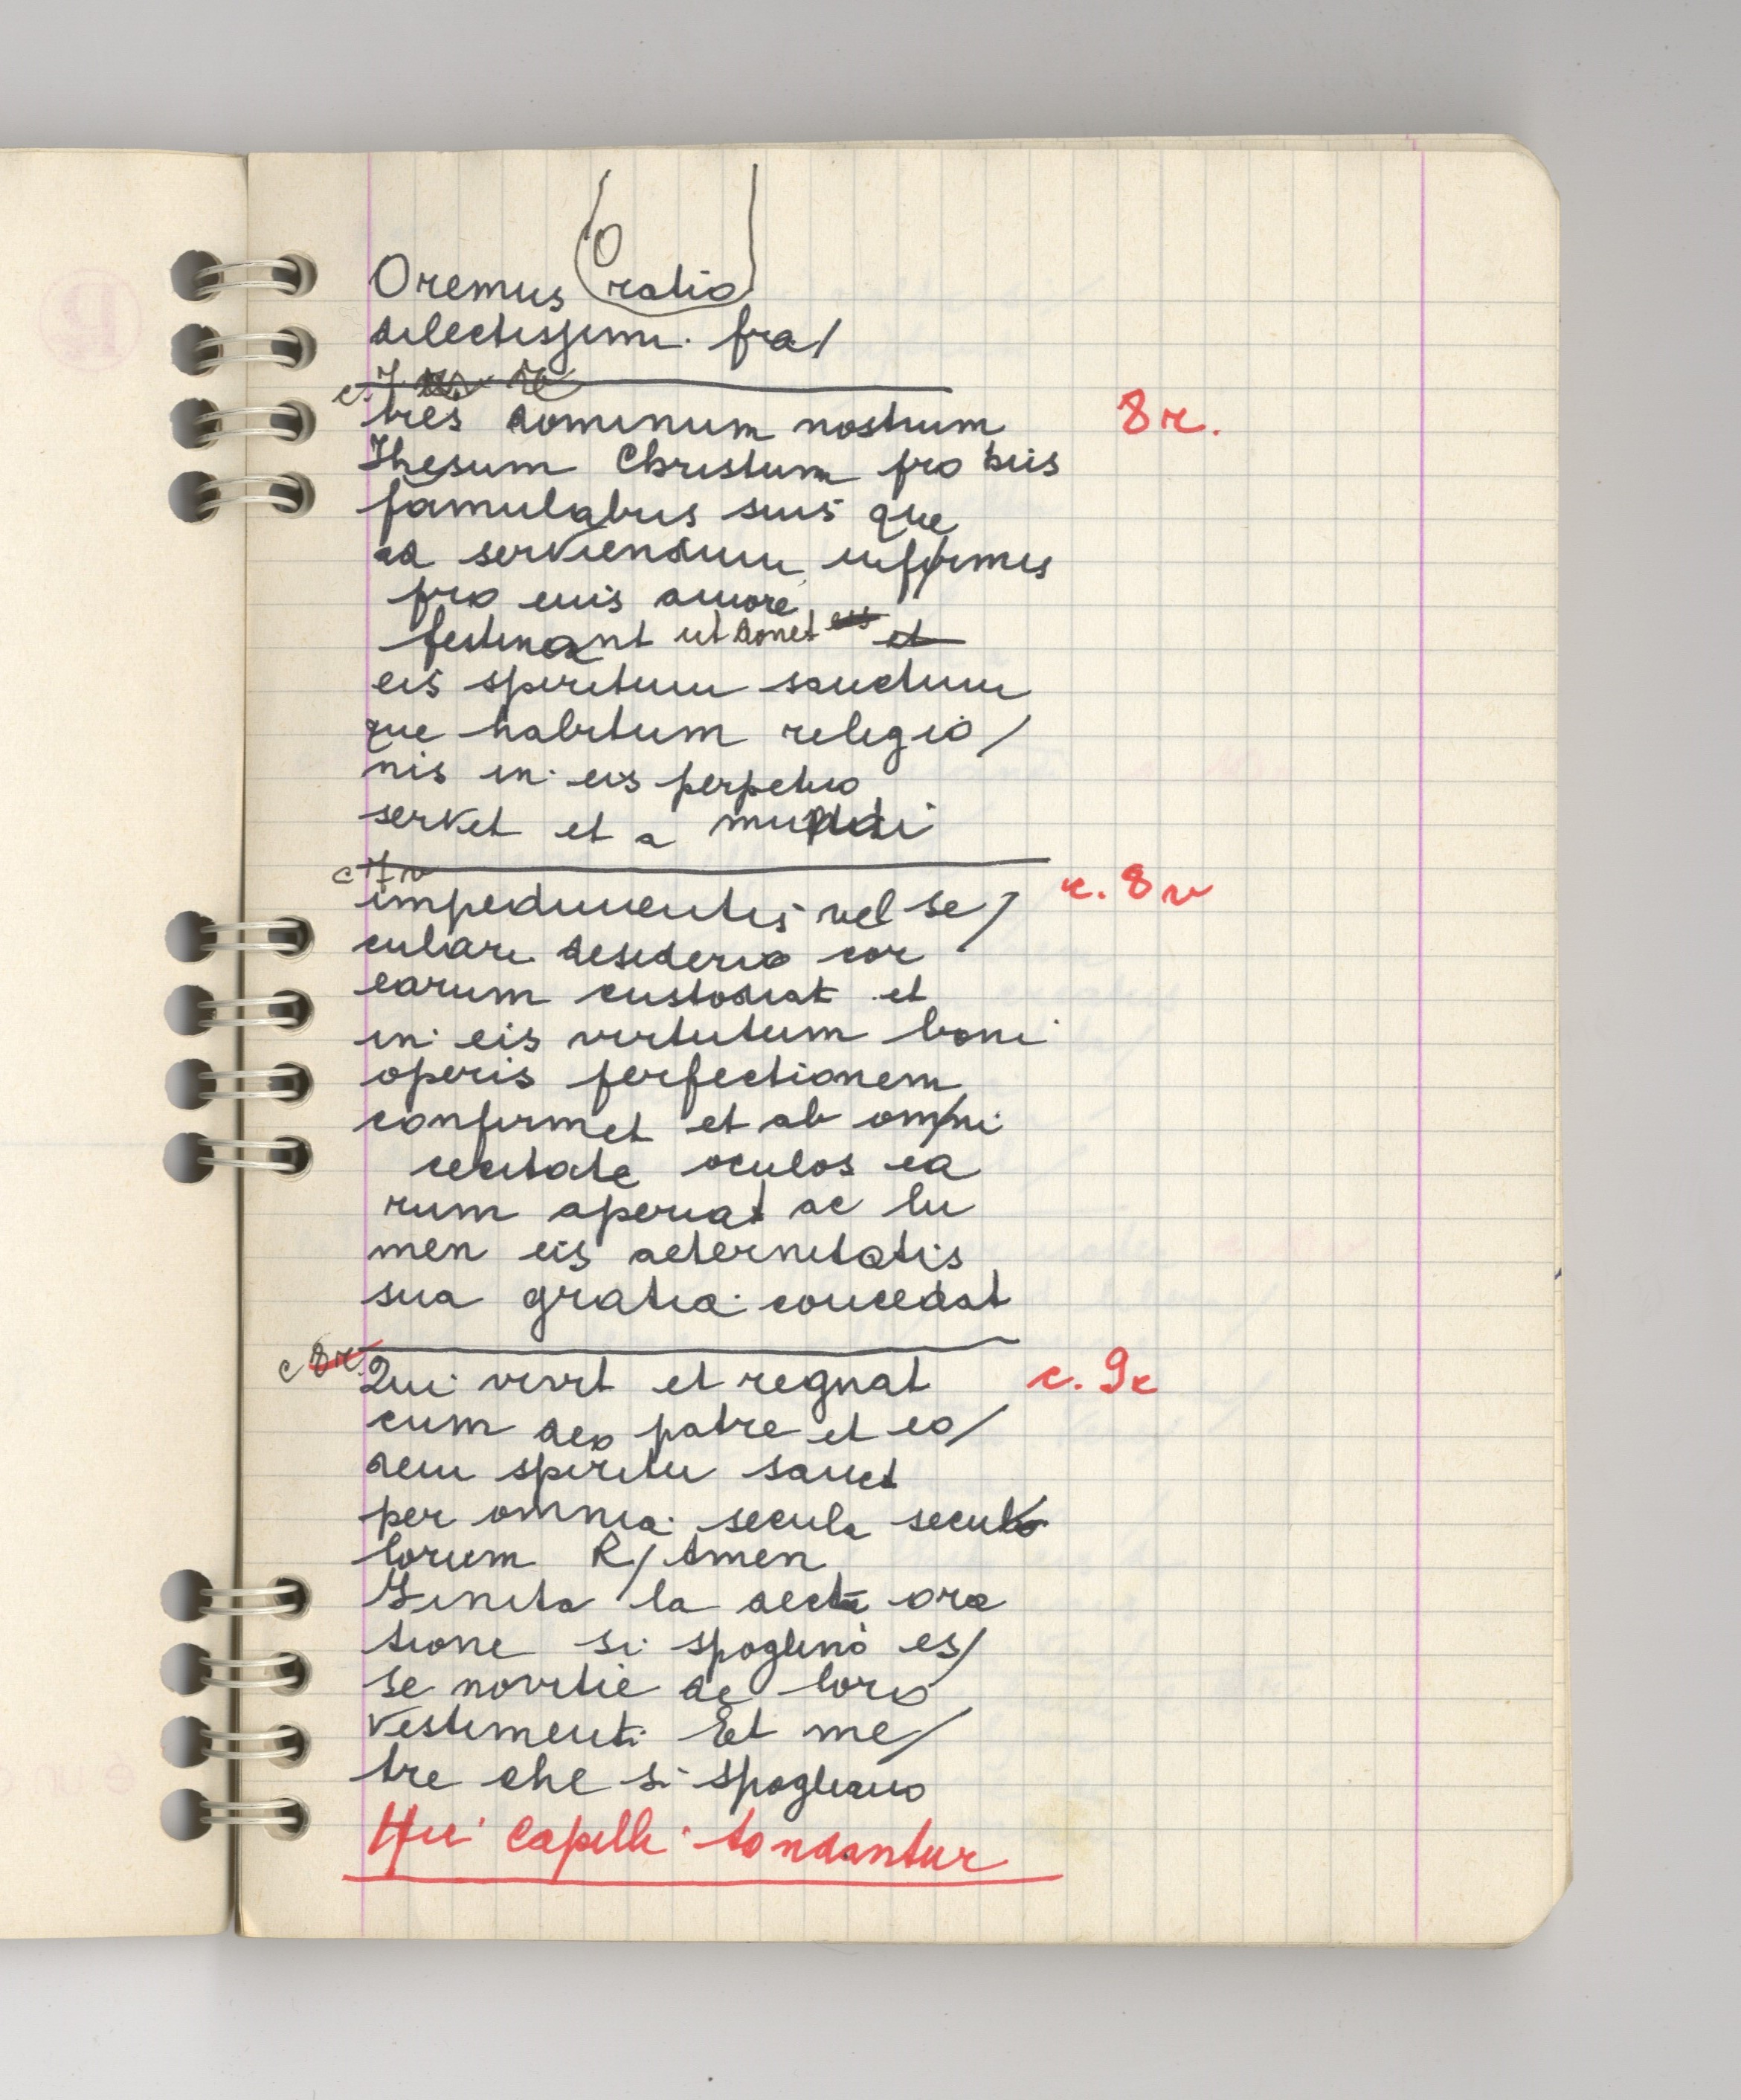 Oremus Oratio
dilectissimi fra/
tres dominum nostrum 8r.
Jhesum Christum pro hiis
famulabus suis que
ad serviendum infirmis
pro eius amore
festinant ut donet eis et
eis spiritum sanctum
que habitum religio/
nis in eis perpetuo
servet et a mundi
c 7v
impedimentis vel se/ c. 8v
culari desiderio cor
earum custodiat et
in eis virtutum boni
operis perfectionem
confirmet et ab om/ni
cecitate oculos ea
rum aperiat ac lu
men eis aeternitatis
sua gratia concedat
c 8r. Qui vivit et regnat c. 9r
cum deo patre et eo/
dem spiritu sanct
per omnia secula secul
lorum R/ Amen
Finita la decta ora
tione si spoglino es/
se novitie de loro
vestimenti Et me/
tre che si spogliano
Hii capilli tondantur